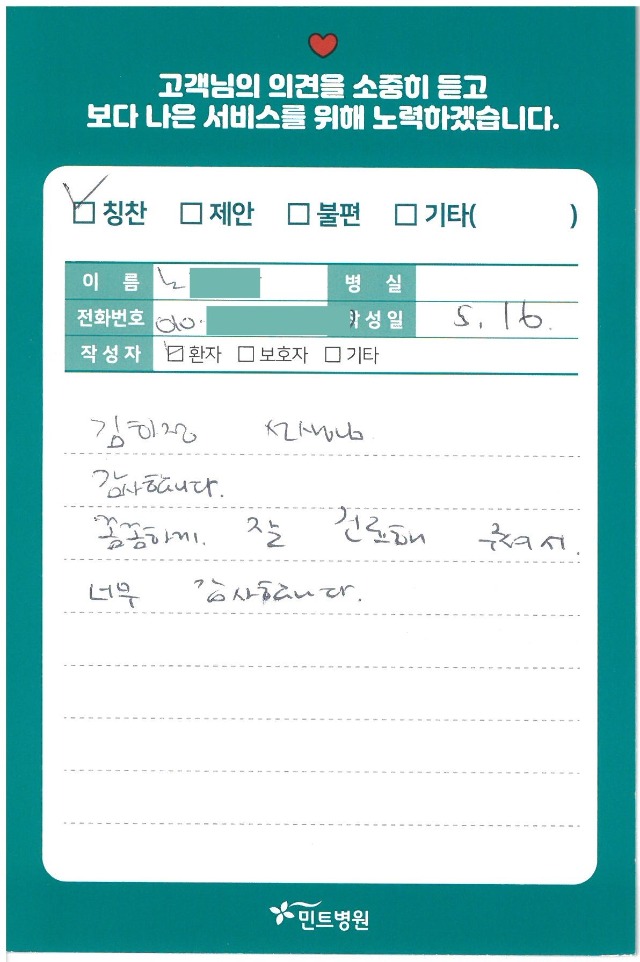 고객님의 의견을 소중히 듣고
보다 나은 서비스를 위해 노력하겠습니다.
칭찬 제안 불편 기타( )
이 름 노 병 실
전화번호 010. 작성일 5. 16.
작성자 환자 보호자 기타
김희정 선생님
감사합니다.
꼼꼼하게. 잘 진료해 주셔서.
너무 감사합니다.
민트병원